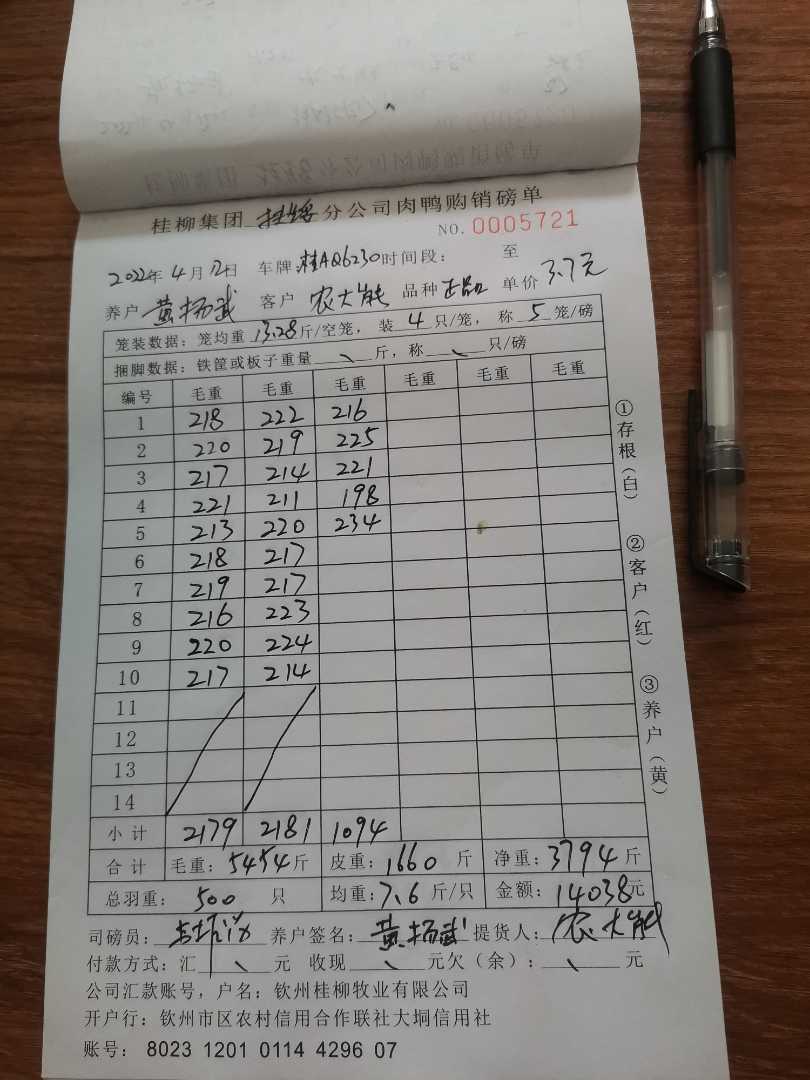 桂柳集团 分公司肉鸭购销磅单
NO. 0005721
2022年4月12日 车牌:桂AQ6230时间段: 至
养户黄扬武 客户 农大能 品种正品 单价3.7元
笼装数据:笼均重13.28斤/空笼,装4只/笼,称5笼/磅
捆脚数据:铁筐或板子重量 斤,称 只/磅
编号 毛重 毛重 毛重 毛重 毛重 毛重
1 218 222 216
2 220 219 225
3 217 214 221
4 221 211 198
5 213 220 234
6 218 217
7 219 217
8 216 223
9 220 224
10 217 214
11
12
13
14
小计 2179 2181 1094
合计 毛重:5454斤 皮重:1660斤 净重:3794斤
总羽重:500只 均重:7.6斤/只 金额:14038元
司磅员: 养户签名:黄扬武 提货人:农大能
付款方式:汇 元 收现 元欠(余): 元
公司汇款账号,户名:钦州桂柳牧业有限公司
开户行:钦州市区农村信用合作联社大垌信用社
账号:8023 1201 0114 4296 07
①存根(白)
②客户(红)
③养户(黄)